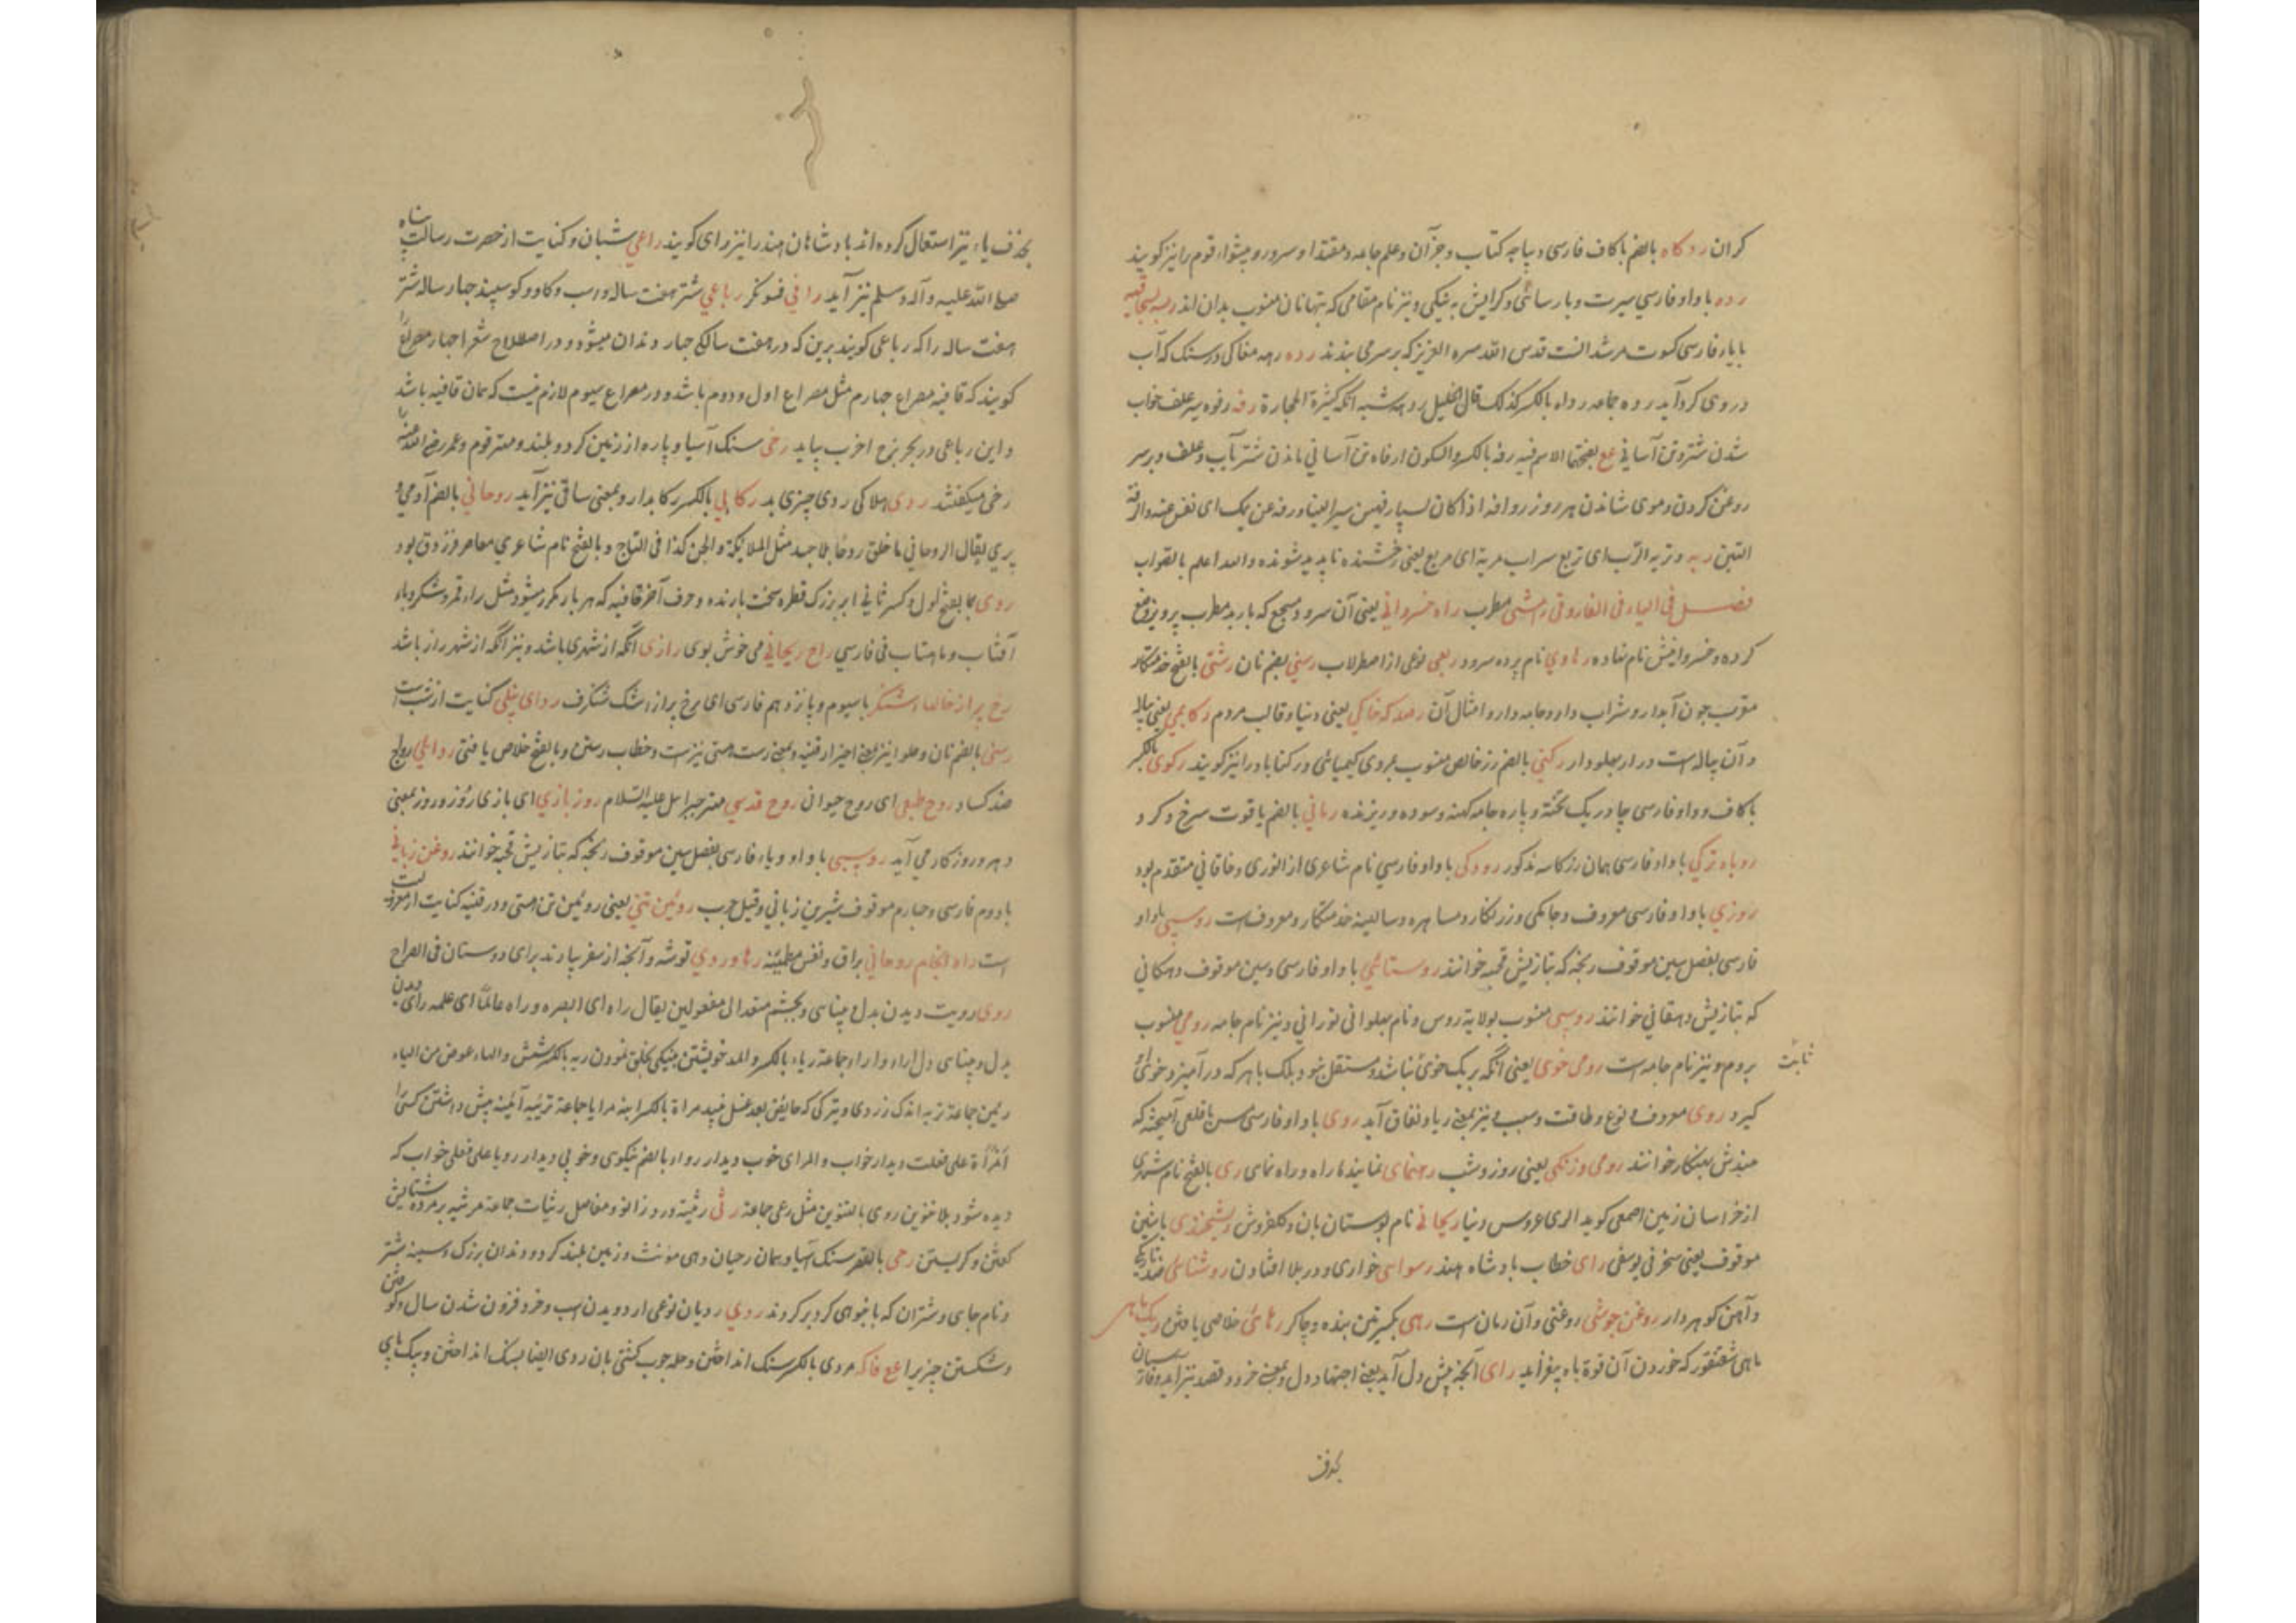 کران رودکاه بالضم با کاف فارسی دیباچه کتاب و جز آن و علم جامه و مقتدا و سرور و پیشوا، قوم را نیز کویند
رده با واو فارسی سیرت و پارسائی و کرایش به نیکی و نیز نام مقامی که بتهانان منسوب بدان اند
با یاء فارسی کسوت مرشد انست قدس الله سره العزیز که بر سر می بندند رده رهه مغاکی در سنک که آب
در وی کرد آید روه جماعه رداه بالکسر کذلک قال الخلیل ردهه شبه اکمه کثیرة الحجارة رفه رفوه سیر علف خواب
شدن شتر و تن آسانی مع بفتحها الاسم فیه رفه بالکسر والسکون ارفاه تن آسانی ماندن شتر بآب و علف و بر سر
روغن کردن و موی شاندن هر روز
التبن ریه و تریه الترب ای تریع سراب مریة ای مریع یعنی رخشنده ناپدید شونده والله اعلم بالصواب
فصل فی الیاء فی الفارو قی رامشی مطرب راه خسروانی یعنی آن سرود مسجع که باربد مطرب پرویز وضع
کرده و خسروانیش نام نهاده رهاوی نام پرده سرود ربعی نوعی از اصطرلاب رسنی بضم نان رشتی بالفتح خدمتکار
مقرب چون آبدار و شراب دار و جامه دار و امثال آن رصد که خاکی یعنی دنیا و قالب مردم رکابی یعنی پیاله
و آن پیاله است دراز پهلودار رکنی بالضم زر خالص منسوب بمردی کیمیائی و رکناباد را نیز کویند رکوی بالکسر
با کاف و واو فارسی چادر یک تخته و پاره جامه کهنه و سوده و ریزنده رمانی بالضم یاقوت سرخ و کرد
روباه ترکی با واو فارسی همان رزکاسه مذکور رودکی با واو فارسی نام شاعری از انوری و خاقانی متقدم بود
روزی با واو فارسی معروف و جامکی و زر نکار و مشاهره و سالینه خدمتکار و معروفست روسپی باواو
فارسی بفصل سین موقوف رنجه که بتازیش قحبه خوانند روستائی با واو فارسی و سین موقوف دهکانی
که بتازیش دهقانی خوانند روسی منسوب بولایة روس و نام پهلوانی تورانی و نیز نام جامه رومی منسوب
بروم و نیز نام جامه است رومی خوی یعنی انکه بر یک خوی نباشد و مستقل نبود بلک با هر که در آمیزد خوئی او
ثابت
کیرد روی معروف و نوع و طاقت و سبب و نیز بمعنی ریا و نفاق آید روی با واو فارسی مس با قلعی آمیخته که
هندش بهنکار خوانند رومی و زنکی یعنی روز و شب رهنمای نماینده راه و راه نمای ری بالفتح نام شهری
از خراسان زمین اصمعی کوید الری عروس دنیا ریحانی نام بوستان بان و کلفروش
موقوف یعنی سخر فی یوسفی رای خطاب بادشاه هند رسوائی خواری و در بلا افتادن روشنائی ضد تاریکی
و آهن کوهردار روغن جوشی روغنی و آن رمان است رهی بکسرتین بنده و چاکر رهائی خلاصی یافتن ریک ماهی
ماهی شقنقور که خوردن آن قوة باه بیفزاید رای آنچه پیش دل آید یعنی اجتهاد دل و بمعنی خرد و قصد نیز آید و فارسیان
بحذف
بحذف یاء نیز استعمال کرده اند بادشاهان هند را نیز رای کویند راعی شبان و کنایت از حضرت رسالت پناه
صلی الله علیه و آله و سلم نیز آید راقی فسونکر رباعی شتر هفت ساله و اسب و کاو و کوسپند چهار ساله شتر
هفت ساله را که رباعی کویند برین که در هفت سالکی چهار دندان میشود و در اصطلاح شعرا چهار مصراع را
کویند که قافیه مصراع چهارم مثل مصراع اول و دوم باشد و در مصراع سیوم لازم نیست که همان قافیه باشد
و این رباعی در بحر هزج اخرب بیاید رحی سنک آسیا و پاره از زمین کرد و بلند و مهتر قوم و عمر رضی الله عنه را
رحی میکفتند ردی هلاکی ردی چیزی بد رکابی بالکسر رکابدار و بمعنی ساقی نیز آید روحانی بالضم آدمی و
پری یقال الروحانی ما خلق روحا بلا جسد مثل الملائکة والجن کذا فی التاج و بالفتح نام شاعری معاصر فرزدق بود
روی بالفتح اول و کسر ثانی ابر بزرک قطره سخت بارنده و حرف آخر قافیه که هر بار مکرر میشود مثل راء قمر و شکر و باء
آفتاب و ماهتاب فی فارسی راح ریحانی می خوش بوی رازی انکه از شهری باشد و نیز انکه از شهر راز باشد
رخ پر از خالها، شنکر با سیوم و پانزدهم فارسی ای رخ پر از اشک شنکرف ردای نیلی کنایت از شب است
رستی بالضم نان و حلوا نیز و بمعنی رست هستی نیز است و خطاب رستن و بالفتح خلاص یافتی روائی رواج
ضد کساد روح طبعی ای روح حیوانی روح قدسی مهتر جبرائیل علیه السلام روز بازی ای بازی روز و روز بمعنی
دهر و روزکار می آید روسپی با واو و یاء فارسی بفصل سین موقوف رنجه که بتازیش قحبه خوانند روغن زبانی
با دوم فارسی و چهارم موقوف شیرین زبانی و قیل چرب روئین تنی یعنی روئین تن هستی و در قنیه کنایت از معرفت
است راه انجام روحانی براق و نفس مطمئنه رهاوردی توشه و آنچه از سفر بیارند برای دوستان فی الصراح
روی رویت دیدن بدل و بیناسی و بچشم متعد الی مفعولین یقال راه ای البصره و راه عالما ای علمه رای دیدن
بدل و بیناسی دل اراء و اراء جماعة ریاء بالکسر والمد خویشتن بنیکی بخلق نمودن ریه بالکسر شش والهاء عوض من الیاء
رئین جماعة تریه اندک زردی و تیرکی که حایض بعد غسل بیند مراة بالکسر اینه مرایا جماعة ترئیه آئینه پیش داشتن کسی را
امرأة علی فعلت دیدار خواب والمرای خوب دیدار رواء بالضم نیکوی و خوبی دیدار رویا علی فعلی خواب که
دیده شود بلا تنوین روی بالتنوین مثل رعی جماعة رثی رثیة درد زانو و مفاصل رثیات جماعة مرثیه بر مرده ستایش
کفتن و کریستن رحی بالقصر سنک آسیا و همان رحیان وهی مونث و زمین بلند کرد و دندان بزرک و سینه شتر
و نام جای و شتران که بانبوهی کرد بر کردند ردی ردیان نوعی از دویدن اسب و خرد فزون شدن سال وکو کفتن
و شکستن چیزیرا مع فاکه مردی بالکسر سنک انداختن و حله چوب کشتی بان ردی ایضا بسنک انداختن و بیک پای